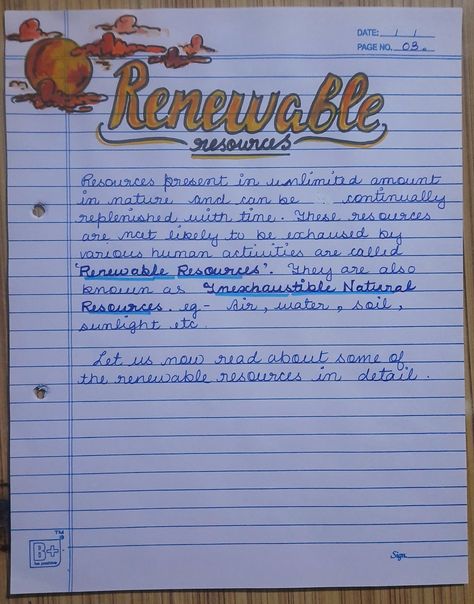 DATE: / /
PAGE NO. 03.
Renewable
resources
Resources present in unlimited amount
in nature and can be continually
replenished with time. These resources
are not likely to be exhaused by
various human activities are called
'Renewable Resources'. They are also
known as Inexhaustible Natural
Resources. eg- Air, water, soil,
sunlight etc.
Let us now read about some of
the renewable resources in detail.
B+
TM
be positive
Sign